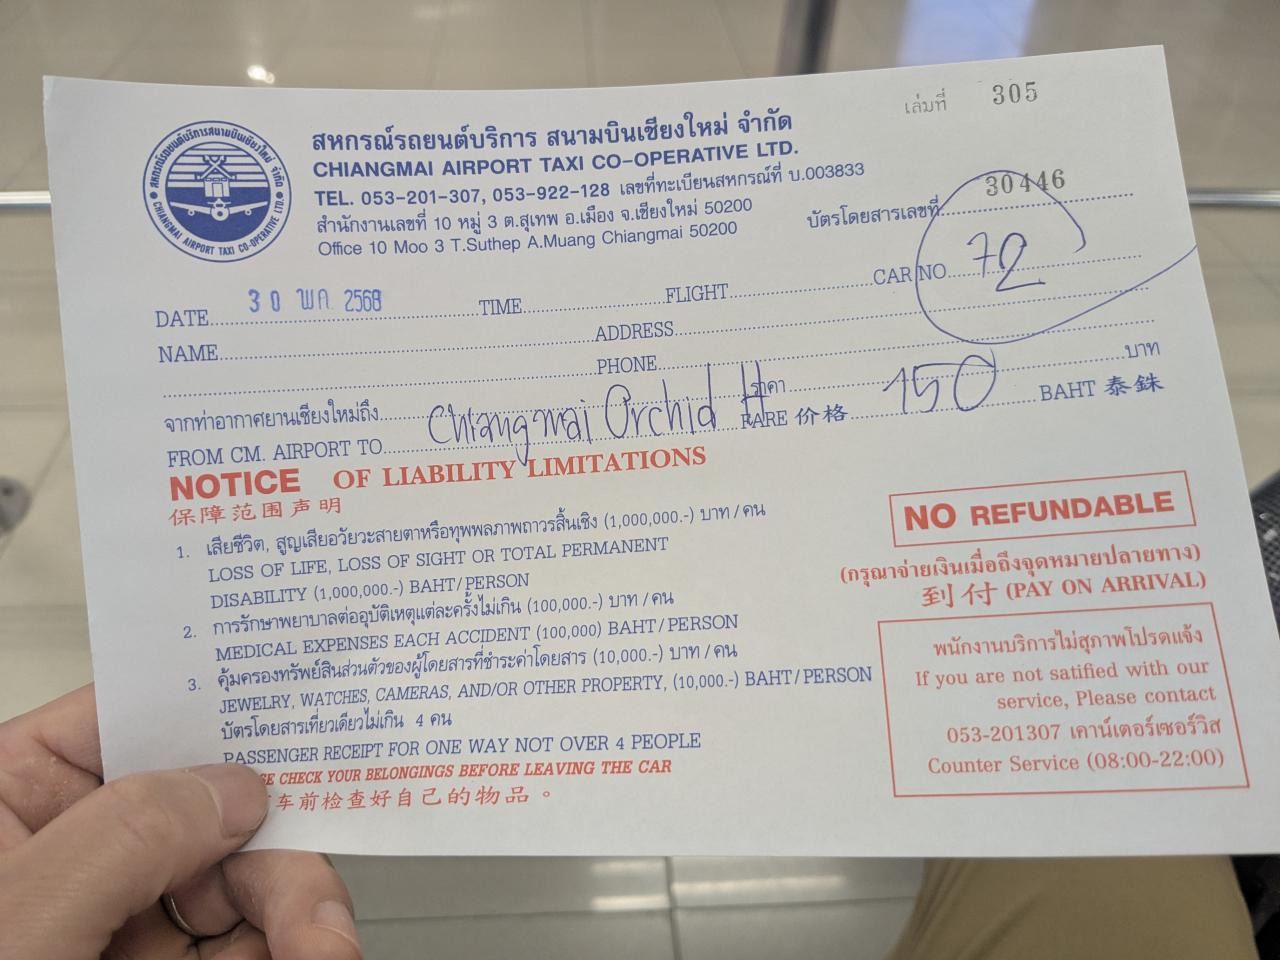 เล่มที่ 305
สหกรณ์รถยนต์บริการ สนามบินเชียงใหม่ จำกัด
CHIANGMAI AIRPORT TAXI CO-OPERATIVE LTD.
TEL. 053-201-307, 053-922-128 เลขที่ทะเบียนสหกรณ์ที่ บ.003833
สำนักงานเลขที่ 10 หมู่ 3 ต.สุเทพ อ.เมือง จ.เชียงใหม่ 50200
Office 10 Moo 3 T.Suthep A.Muang Chiangmai 50200
บัตรโดยสารเลขที่ 30446
สหกรณ์รถยนต์บริการสนามบินเชียงใหม่ จำกัด
CHIANGMAI AIRPORT TAXI CO-OPERATIVE LTD.
DATE 30 พค. 2568 TIME FLIGHT CAR NO 72
NAME ADDRESS
PHONE
จากท่าอากาศยานเชียงใหม่ถึง ราคา บาท
FROM CM. AIRPORT TO Chiangmai Orchid H FARE 价格 150 BAHT 泰銖
NOTICE OF LIABILITY LIMITATIONS
保障范围声明
1. เสียชีวิต, สูญเสียอวัยวะสายตาหรือทุพพลภาพถาวรสิ้นเชิง (1,000,000.-) บาท / คน
LOSS OF LIFE, LOSS OF SIGHT OR TOTAL PERMANENT
DISABILITY (1,000,000.-) BAHT/PERSON
2. การรักษาพยาบาลต่ออุบัติเหตุแต่ละครั้งไม่เกิน (100,000.-) บาท / คน
MEDICAL EXPENSES EACH ACCIDENT (100,000) BAHT/PERSON
3. คุ้มครองทรัพย์สินส่วนตัวของผู้โดยสารที่ชำระค่าโดยสาร (10,000.-) บาท / คน
JEWELRY, WATCHES, CAMERAS, AND/OR OTHER PROPERTY, (10,000.-) BAHT/PERSON
บัตรโดยสารเที่ยวเดียวไม่เกิน 4 คน
PASSENGER RECEIPT FOR ONE WAY NOT OVER 4 PEOPLE
CHECK YOUR BELONGINGS BEFORE LEAVING THE CAR
车前检查好自己的物品。
NO REFUNDABLE
(กรุณาจ่ายเงินเมื่อถึงจุดหมายปลายทาง)
到付 (PAY ON ARRIVAL)
พนักงานบริการไม่สุภาพโปรดแจ้ง
If you are not satified with our
service, Please contact
053-201307 เคาน์เตอร์เซอร์วิส
Counter Service (08:00-22:00)